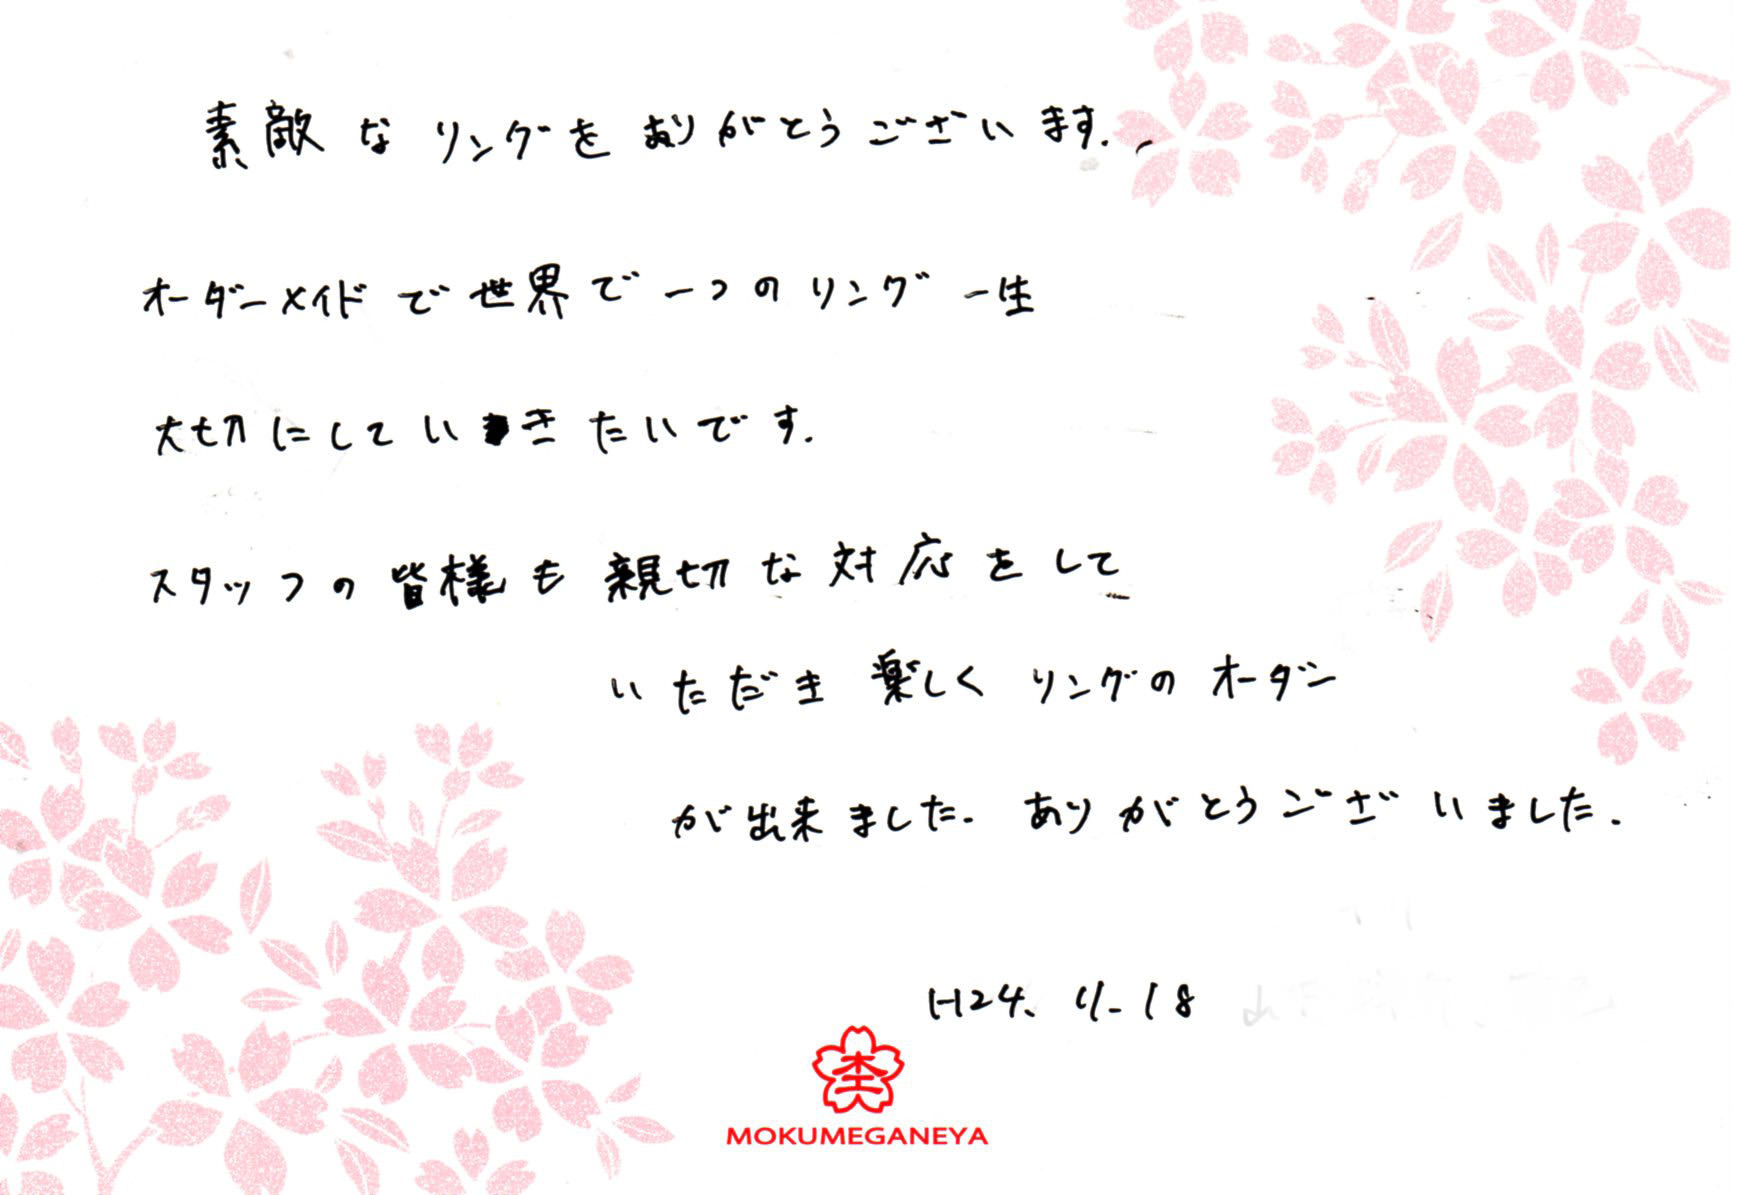 素敵なリングをありがとうございます.
オーダーメイドで世界で一つのリング一生
大切にしていきたいです.
スタッフの皆様も親切な対応をして
いただき楽しくリングのオーダー
が出来ました. ありがとうございました.
H24. 4. 18
MOKUMEGANEYA